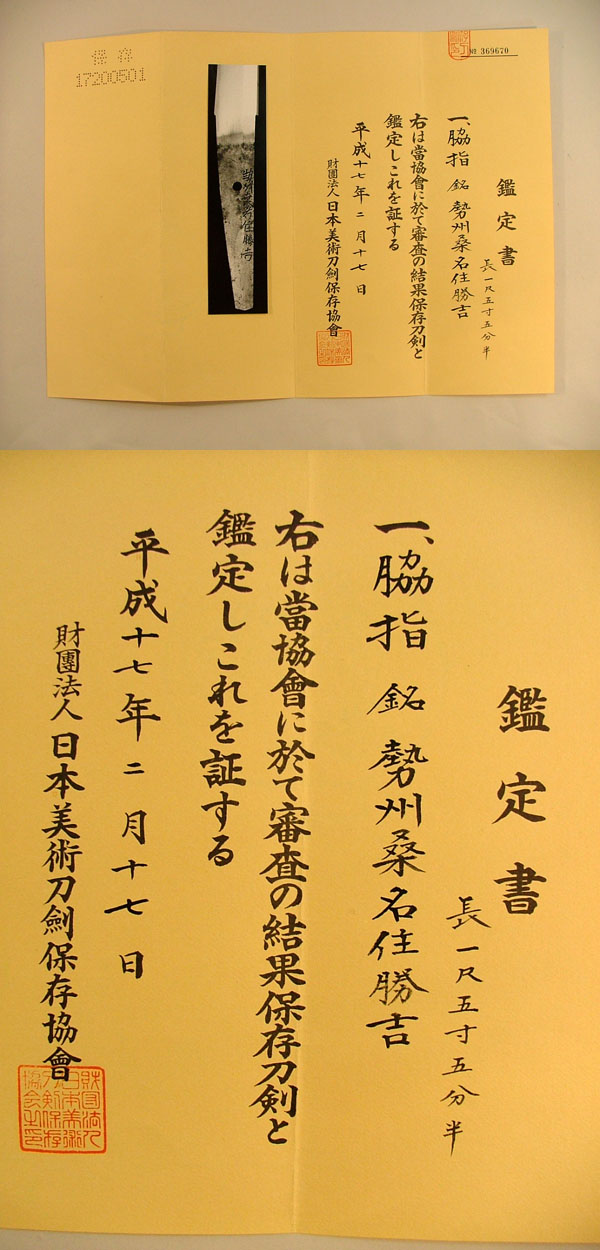 No 369670
鑑定書
一、脇指 銘 勢州桑名住勝吉
長一尺五寸五分半
右は當協會に於て審査の結果保存刀剣と
鑑定しこれを証する
平成十七年二月十七日
財團法人日本美術刀劍保存協會
勢州桑名住勝吉
保存
17200501
鑑定書
長一尺五寸五分半
一、脇指 銘 勢州桑名住勝吉
右は當協會に於て審査の結果保存刀剣と
鑑定しこれを証する
平成十七年二月十七日
財團法人日本美術刀劍保存協會
財団法人
日本美術
刀剣保存
協会之印